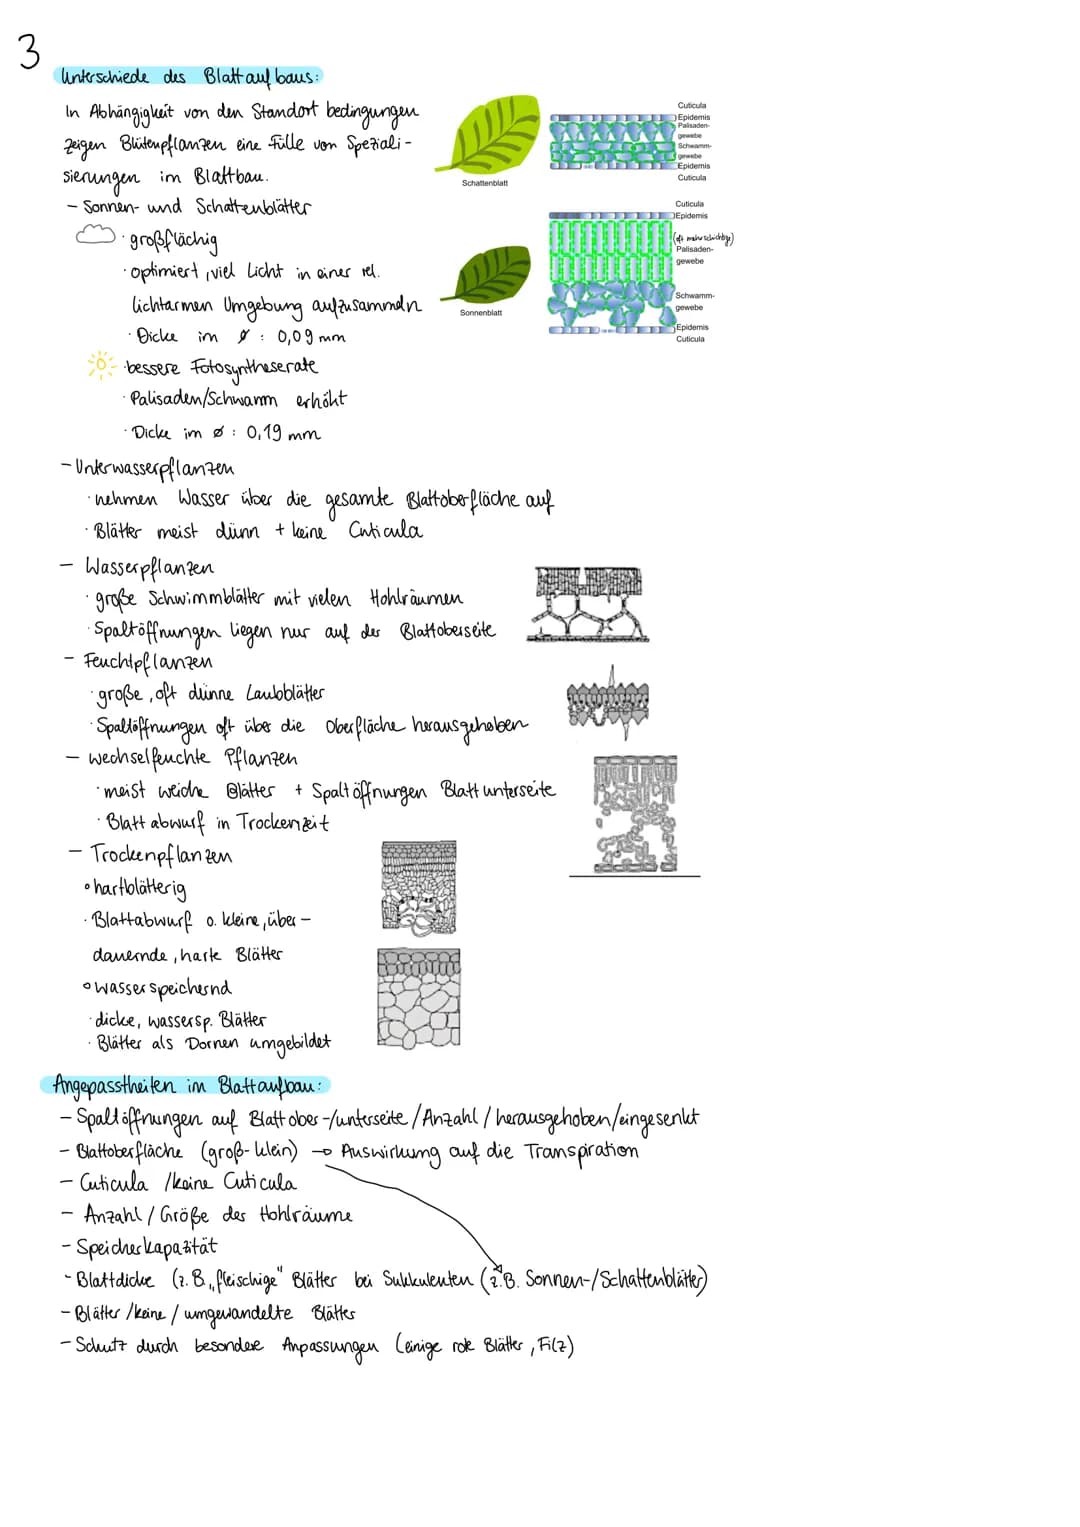 3
Unterschiede des Blattaufbaus:
In Abhängigkeit von den Standortbedingungen
zeigen Blütenpflanzen eine Fülle von Speziali-
sierungen im Blattbau.
- Sonnen- und Schattenblätter
· großflächig
· optimiert, viel Licht in einer rel.
lichtarmen Umgebung aufzusammeln
· Dicke im ø : 0,09 mm
· bessere Fotosyntheserate
· Palisaden/Schwamm erhöht
· Dicke im ø : 0,19 mm
Schattenblatt
Cuticula
Epidemis
Palisaden-
gewebe
Schwamm-
gewebe
Epidemis
Cuticula
Sonnenblatt
Cuticula
Epidemis
(oft mehrschichtig)
Palisaden-
gewebe
Schwamm-
gewebe
Epidemis
Cuticula
- Unterwasserpflanzen
· nehmen Wasser über die gesamte Blattoberfläche auf
· Blätter meist dünn + keine Cuticula
- Wasserpflanzen
· große Schwimmblätter mit vielen Hohlräumen
· Spaltöffnungen liegen nur auf der Blattoberseite
- Feuchtpflanzen
· große, oft dünne Laubblätter
· Spaltöffnungen oft über die Oberfläche herausgehoben
- wechselfeuchte Pflanzen
· meist weiche Blätter + Spaltöffnungen Blattunterseite
· Blattabwurf in Trockenzeit
- Trockenpflanzen
∘ hartblätterig
· Blattabwurf o. kleine, über-
dauernde, harte Blätter
∘ wasserspeichernd
· dicke, wassersp. Blätter
· Blätter als Dornen umgebildet
Angepasstheiten im Blattaufbau:
- Spaltöffnungen auf Blattober-/unterseite / Anzahl / herausgehoben/eingesenkt
- Blattoberfläche (groß-klein) → Auswirkung auf die Transpiration
- Cuticula /keine Cuticula
- Anzahl / Größe der Hohlräume
- Speicherkapazität
- Blattdicke (z.B. „fleischige" Blätter bei Sukkulenten (z.B. Sonnen-/Schattenblätter)
- Blätter /keine / umgewandelte Blätter
- Schutz durch besondere Anpassungen (einige rote Blätter, Filz)